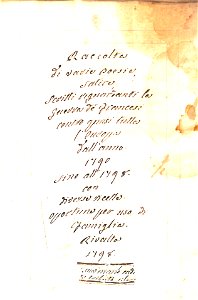 Raccolta
di varie Poesie,
Satire,
Scritti riguardanti la
Guerra de Francesi
contro quasi tutta
l'Europa
dall'anno
1790
sino all' 1798
con
diverse ricette
opportune per uso di
Famiglia.
Rivolta
1798